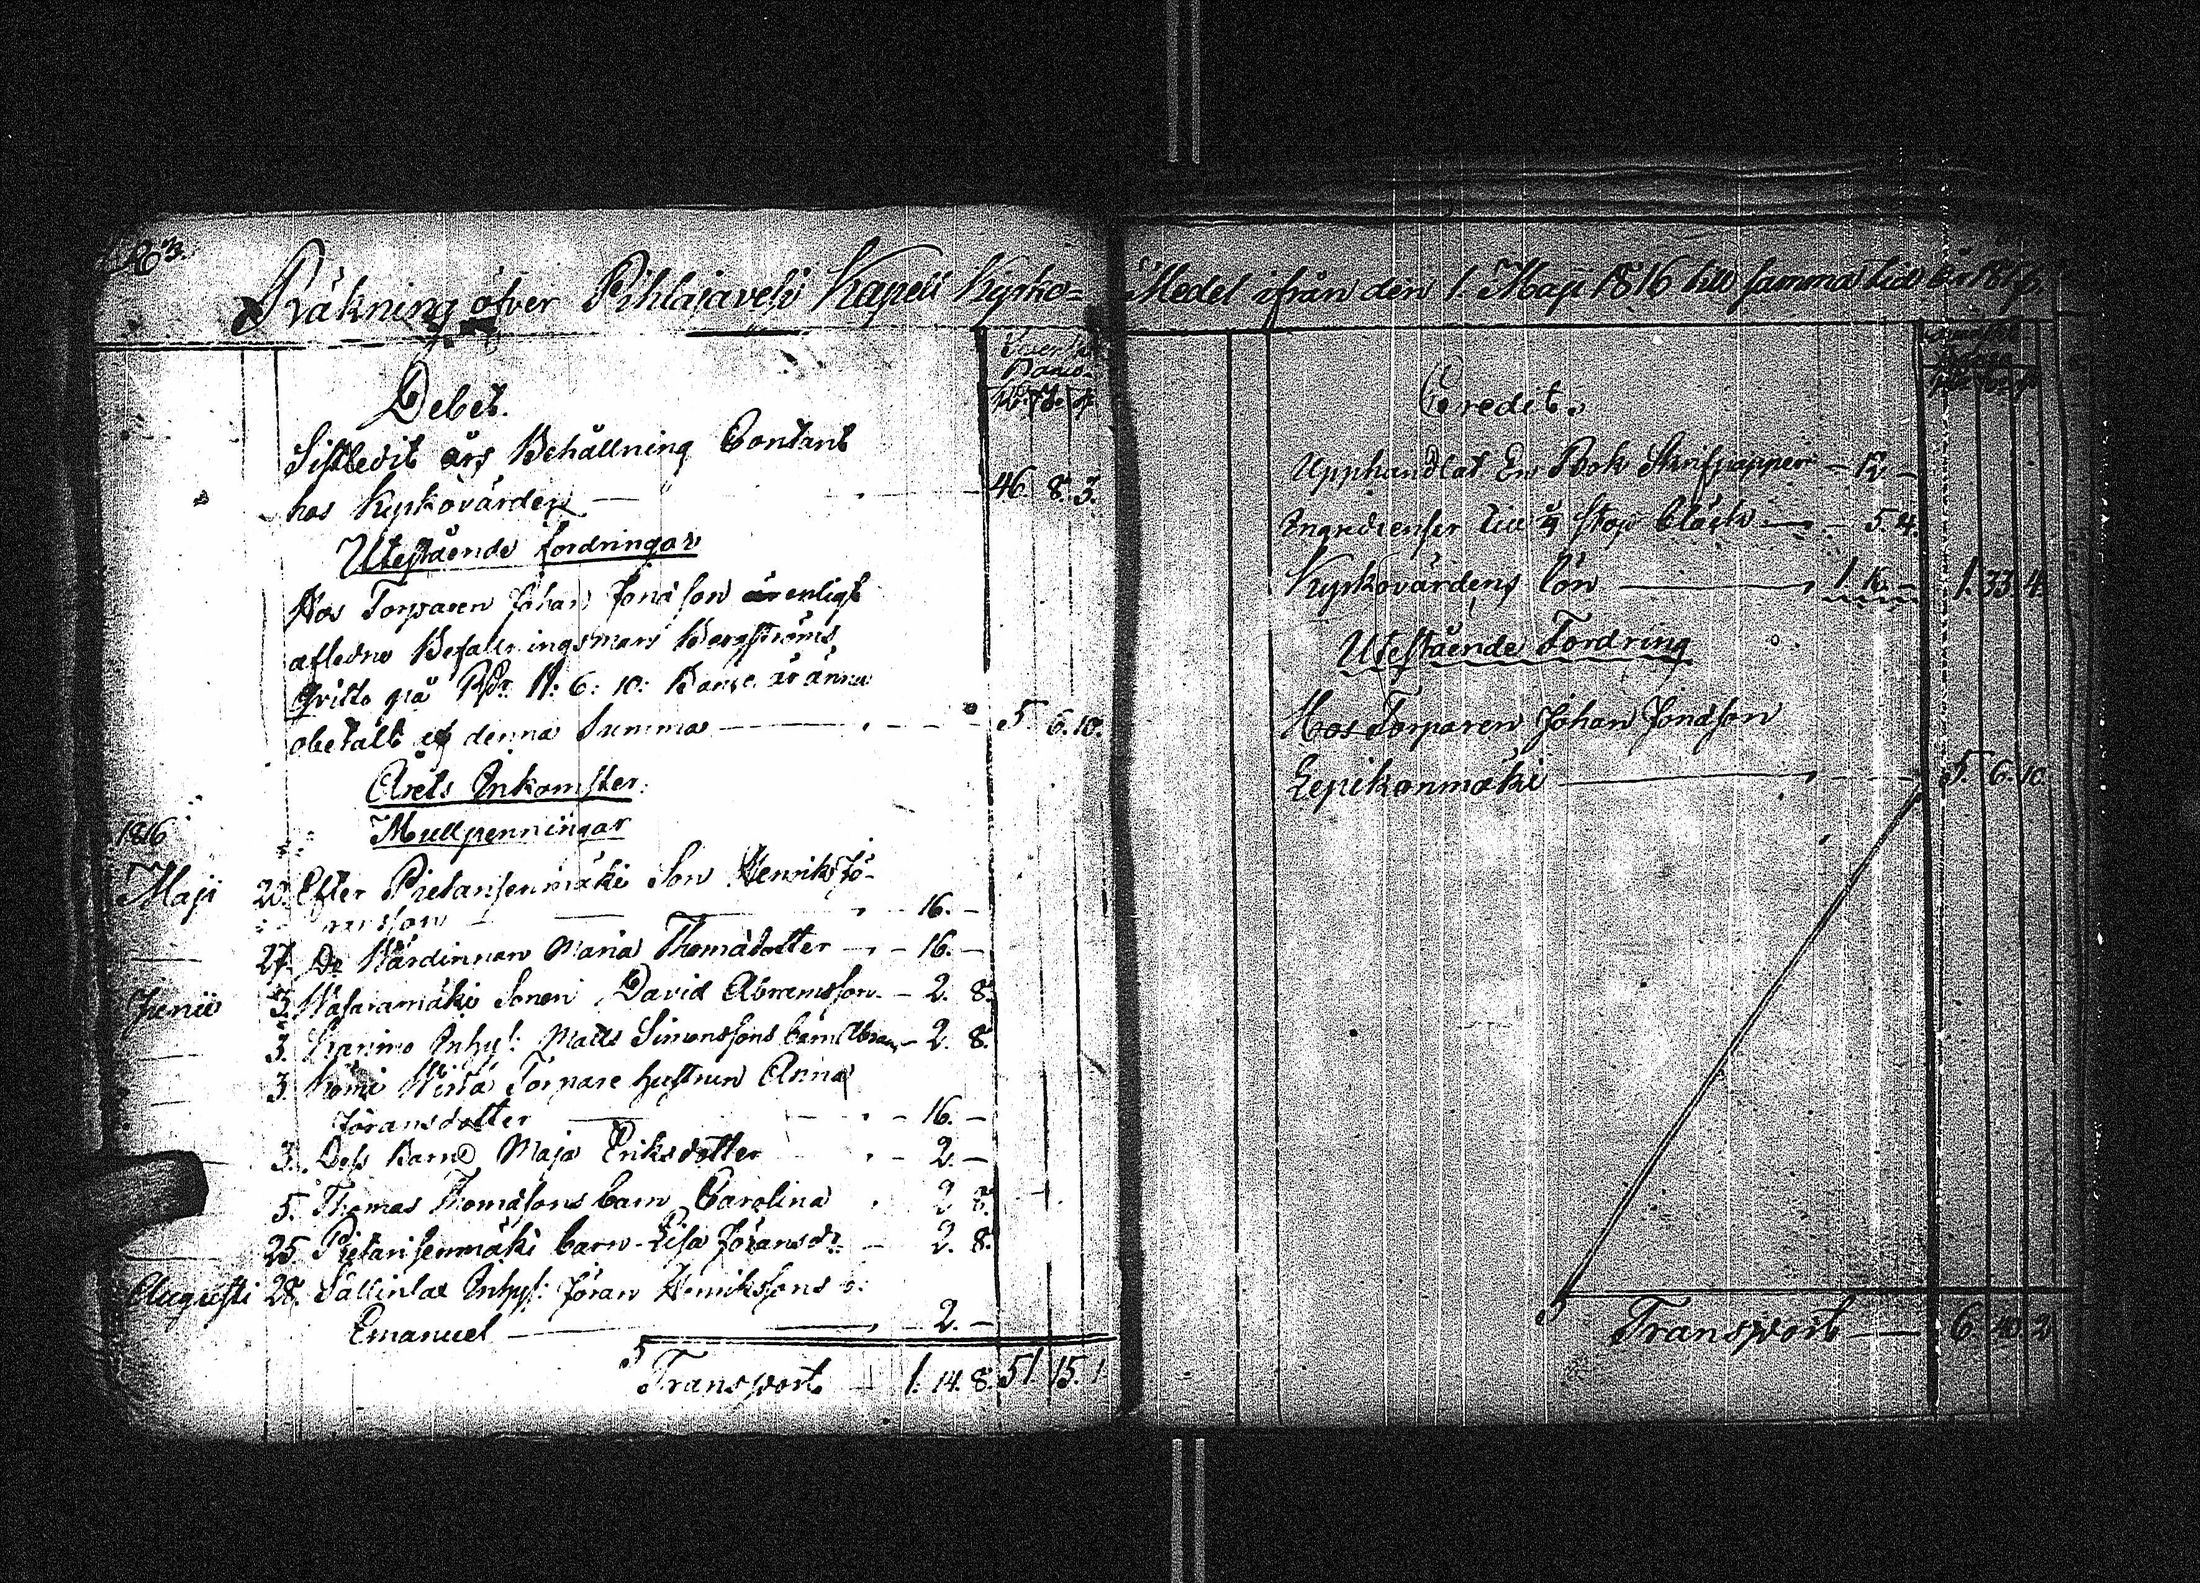 Räkning öfver Pihlajavesi Kapell Kyrko=
Debet.
Banco.
Sistledit års Behållning Contant
hos Kyrkovärden — 46. 8. 3.
Utestående fordringar
Hos Torparen Johan Jonasson enligt
afledne Befallningsman Bergströms
Qvitto på 6: 10: Banco är ännu
obetalt af denna Summa — 5. 6. 10.
Årets Inkomster.
1816 Mullpenningar
Maji 20. Efter Pietarisenmäki Son Henrik Jö-
ransson — 16. —
27. Do Wärdinnan Maria Thomådotter — 16. —
Junii 3. Wasaramäki Sonen David Abramsson — 2. 8.
3. Inhys: Matts Simonssons barn — 2. 8.
3. Torpare hustrun Anna
Jöransdotter — 16. —
3. Dess Barn Maja Eriksdotter — 2. —
5. Thomas Thomassons barn Carolina 2. 8.
25. Pietarisenmäki barn Lisa Jöransdr — 2. 8.
Augusti 28. Sällinlax Inhys: Jöran Henrikssons b:
Emanuel — 2. —
Transport — 1. 14. 8. 51 15. 1
Medel ifrån den 1. Maji 1816 till samma tid
Credit.
Upphandlat En Bok Skrifpapper — 12 —
Ingredienser till stop bläck — 5. 4.
Kyrkovärdens lön — 1. 16. — 1. 33. 4.
Utestående Fordring
Hos Torparen Johan Jonasson
Lepikonmäki — 5. 6. 10.
Transport — 6. 40. 2